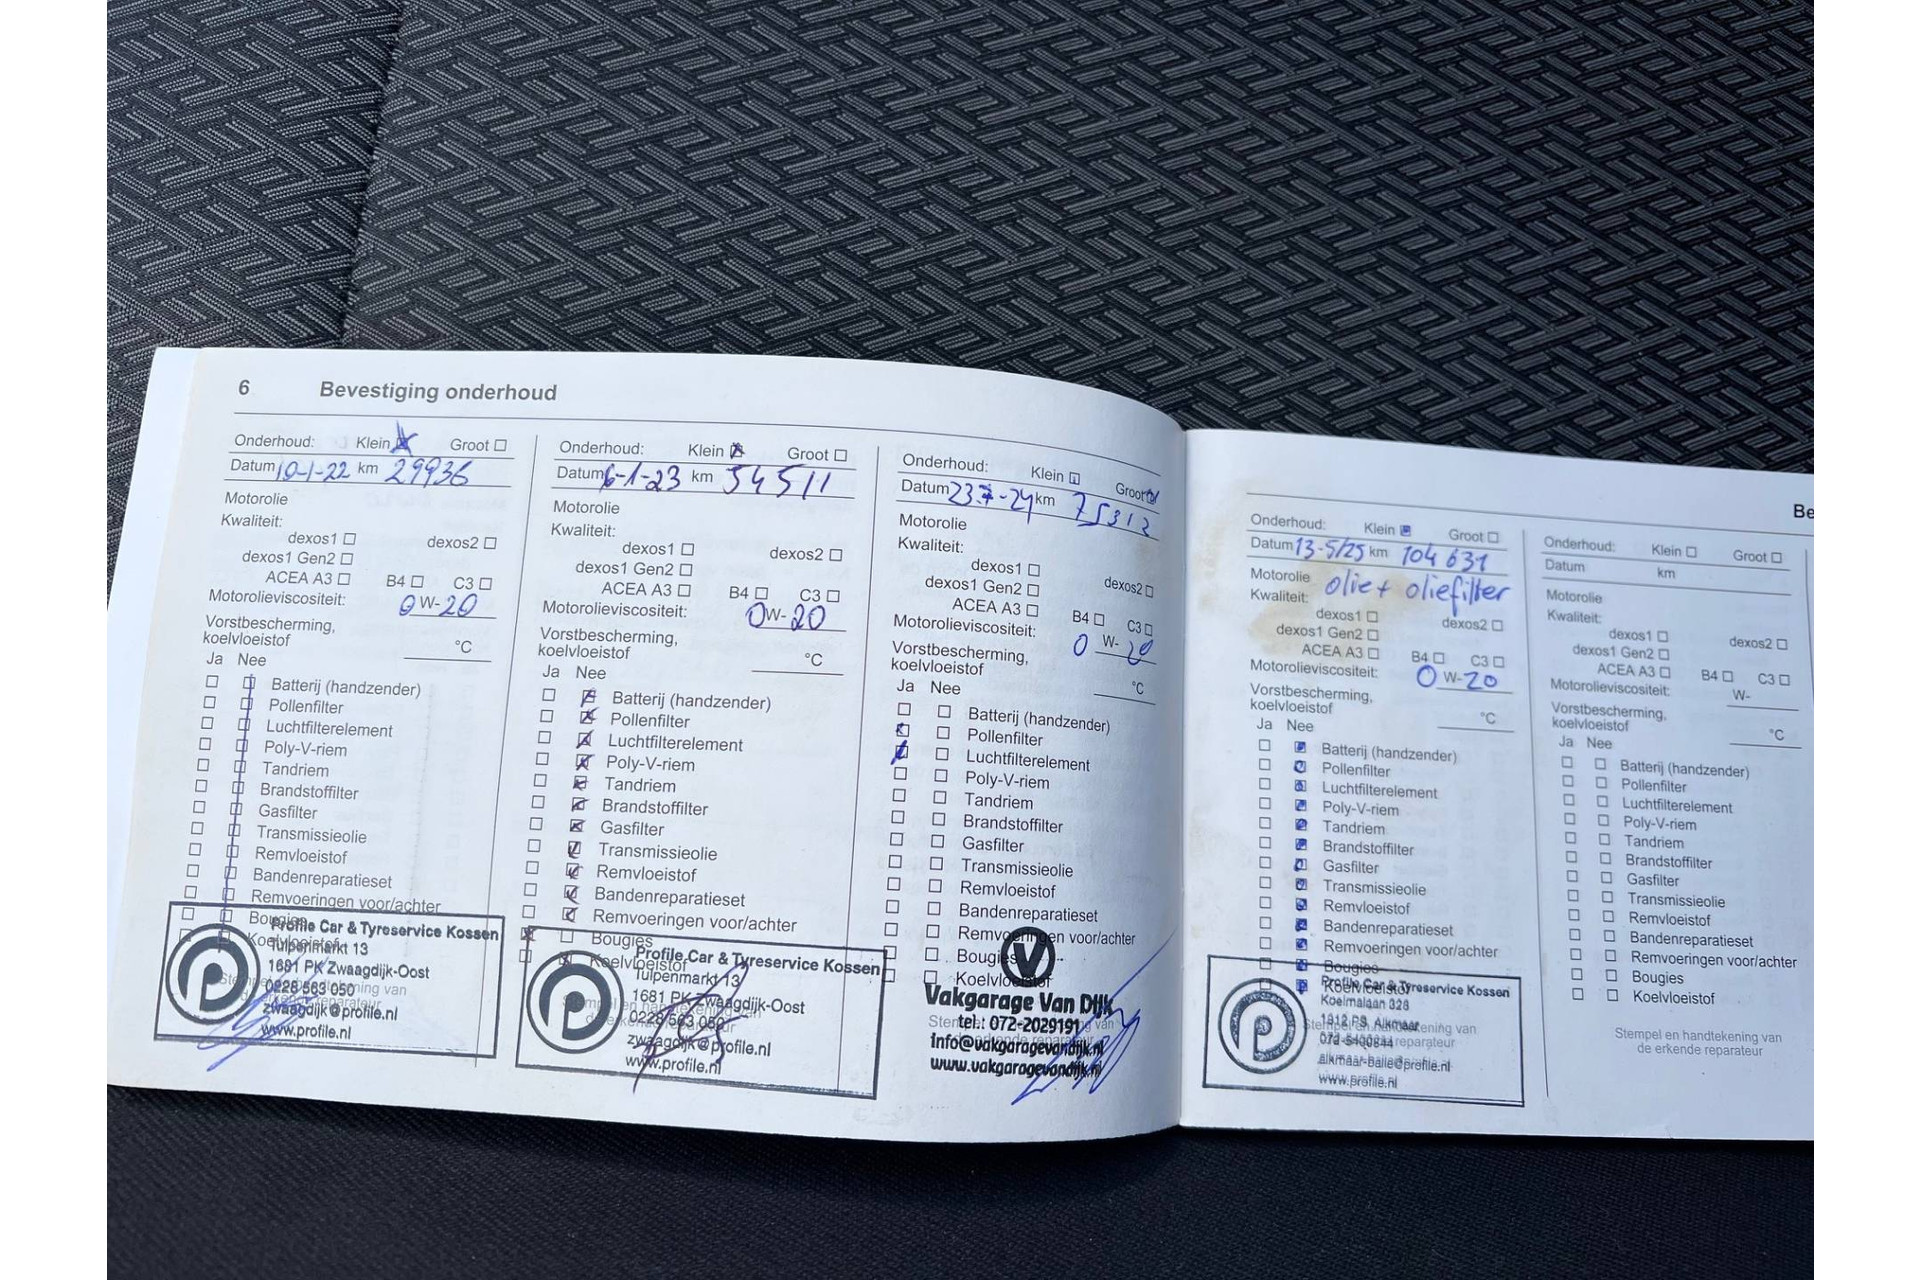 6 Bevestiging onderhoud
Onderhoud: Klein Groot
Datum 10-1-22 km 29936
Motorolie
Kwaliteit:
dexos1 dexos2
dexos1 Gen2
ACEA A3 B4 C3
Motorolieviscositeit: 0 W-20
Vorstbescherming,
koelvloeistof °C
Ja Nee
Batterij (handzender)
Pollenfilter
Luchtfilterelement
Poly-V-riem
Tandriem
Brandstoffilter
Gasfilter
Transmissieolie
Remvloeistof
Bandenreparatieset
Remvoeringen voor/achter
Bougies
Koelvloeistof
Profile Car & Tyreservice Kossen
Tulpenmarkt 13
1681 PK Zwaagdijk-Oost
0228 563 050
zwaagdijk@profile.nl
www.profile.nl
Stempel en handtekening van
de erkende reparateur
Onderhoud: Klein Groot
Datum 6-1-23 km 54511
Motorolie
Kwaliteit:
dexos1 dexos2
dexos1 Gen2
ACEA A3 B4 C3
Motorolieviscositeit: 0W-20
Vorstbescherming,
koelvloeistof °C
Ja Nee
Batterij (handzender)
Pollenfilter
Luchtfilterelement
Poly-V-riem
Tandriem
Brandstoffilter
Gasfilter
Transmissieolie
Remvloeistof
Bandenreparatieset
Remvoeringen voor/achter
Bougies
Koelvloeistof
Profile Car & Tyreservice Kossen
Tulpenmarkt 13
1681 PK Zwaagdijk-Oost
0228 563 050
zwaagdijk@profile.nl
www.profile.nl
Stempel en handtekening van
de erkende reparateur
Onderhoud: Klein Groot
Datum 23-7-24 km 75312
Motorolie
Kwaliteit:
dexos1 dexos2
dexos1 Gen2
ACEA A3 B4 C3
Motorolieviscositeit: 0 W-20
Vorstbescherming,
koelvloeistof °C
Ja Nee
Batterij (handzender)
Pollenfilter
Luchtfilterelement
Poly-V-riem
Tandriem
Brandstoffilter
Gasfilter
Transmissieolie
Remvloeistof
Bandenreparatieset
Remvoeringen voor/achter
Bougies
Koelvloeistof
V
Vakgarage Van Dijk
tel.: 072-2029191
info@vakgaragevandijk.nl
www.vakgaragevandijk.nl
Stempel en handtekening van
de erkende reparateur
Be
Onderhoud: Klein Groot
Datum 13-5/25 km 104 631
Motorolie olie + oliefilter
Kwaliteit:
dexos1 dexos2
dexos1 Gen2
ACEA A3 B4 C3
Motorolieviscositeit: 0 W-20
Vorstbescherming,
koelvloeistof °C
Ja Nee
Batterij (handzender)
Pollenfilter
Luchtfilterelement
Poly-V-riem
Tandriem
Brandstoffilter
Gasfilter
Transmissieolie
Remvloeistof
Bandenreparatieset
Remvoeringen voor/achter
Bougies
Koelvloeistof
Profile Car & Tyreservice Kossen
Koelmalaan 328
1812 PS Alkmaar
072-5400844
alkmaar-balie@profile.nl
www.profile.nl
Stempel en handtekening van
de erkende reparateur
Onderhoud: Klein Groot
Datum km
Motorolie
Kwaliteit:
dexos1 dexos2
dexos1 Gen2
ACEA A3 B4 C3
Motorolieviscositeit: W-
Vorstbescherming,
koelvloeistof °C
Ja Nee
Batterij (handzender)
Pollenfilter
Luchtfilterelement
Poly-V-riem
Tandriem
Brandstoffilter
Gasfilter
Transmissieolie
Remvloeistof
Bandenreparatieset
Remvoeringen voor/achter
Bougies
Koelvloeistof
Stempel en handtekening van
de erkende reparateur